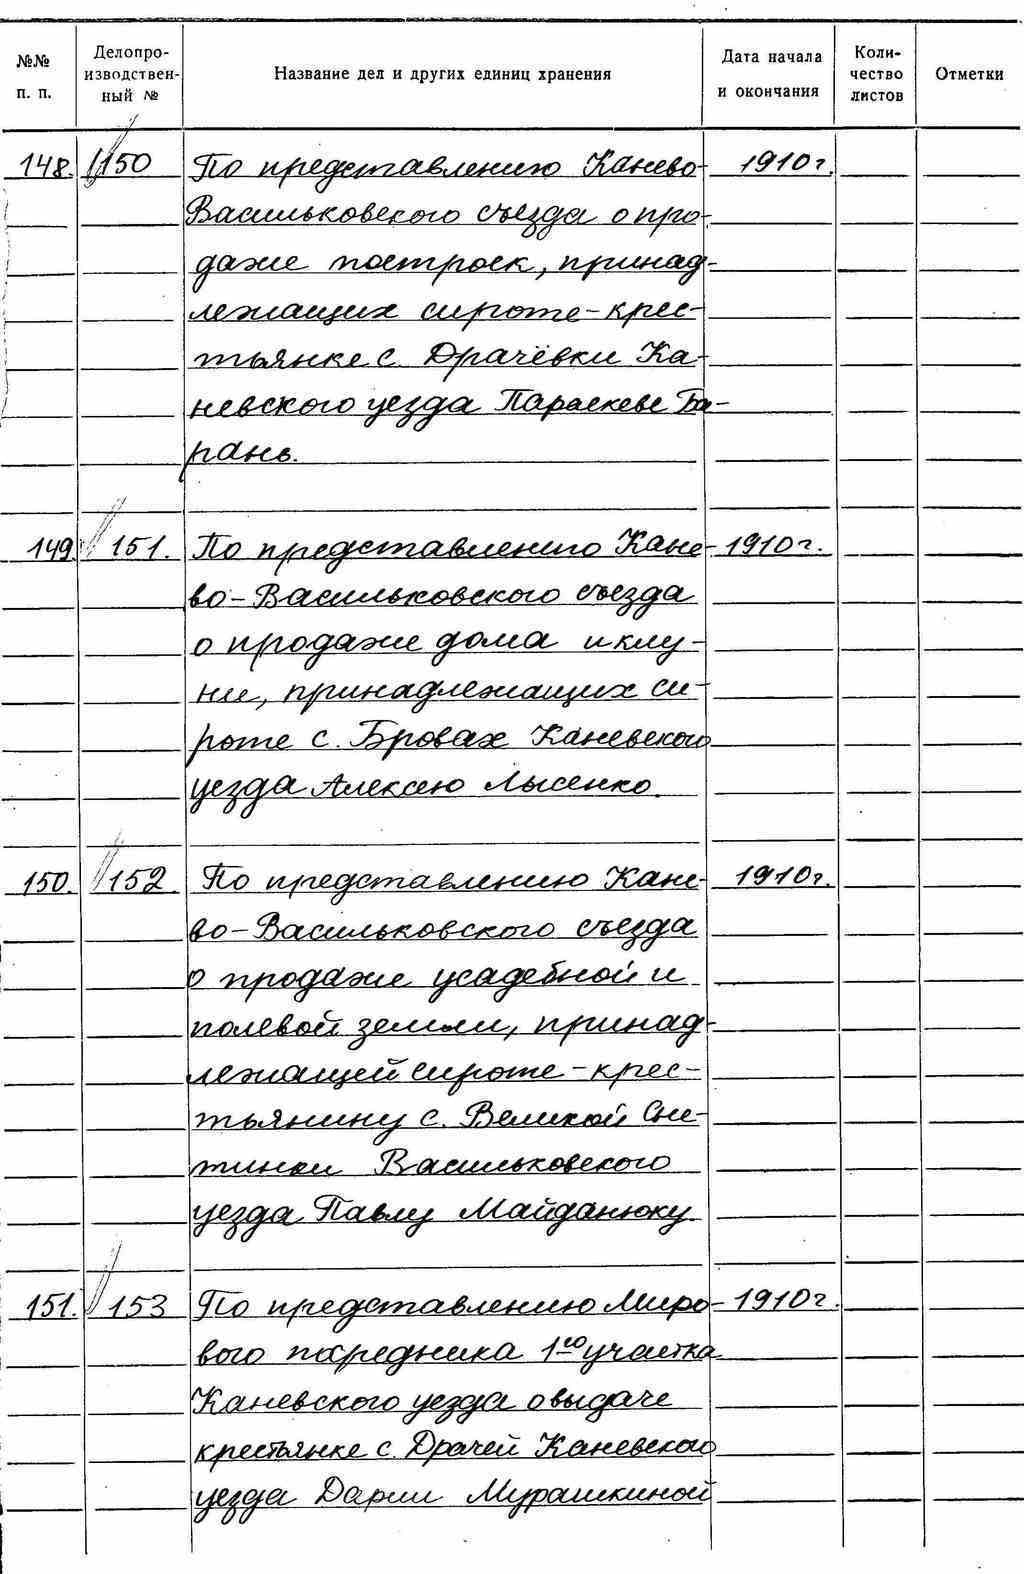 №№ п. п. Делопро-изводствен-ный № Название дел и других единиц хранения Дата начала и окончания Коли-чество листов Отметки
148. 150 По представлению Канево- 1910 г.
Васильковского съезда о про-
даже построек, принад-
лежащих сироте-крес-
тьянке с. Драчёвки Ка-
невского уезда Параскеве Ба-
рань.
149. 151. По представлению Кане- 1910 г.
во-Васильковского съезда
о продаже дома и клу-
ни, принадлежащих си-
роте с. Бровах Каневского
уезда Алексею Лысенко.
150. 152 По представлению Кане- 1910 г.
во-Васильковского съезда
о продаже усадебной и
полевой земли, принад-
лежащей сироте-крес-
тьянину с. Великой Сне-
тинки Васильковского
уезда Павлу Майданюку.
151. 153 По представлению Миро- 1910 г.
вого посредника 1го участка
Каневского уезда о выдаче
крестьянке с. Драчей Каневского
уезда Дарии Мурашкиной